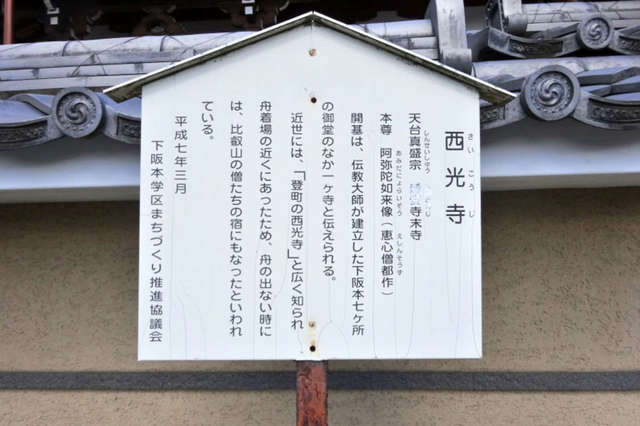 さいこうじ
西光寺
しんせいしゅう
天台真盛宗 寺末寺
あみだにょらいぞう えしんそうず
本尊 阿弥陀如来像(恵心僧都作)
開基は、伝教大師が建立した下阪本七ヶ所
の御堂のなか一ヶ寺と伝えられる。
近世には、「登町の西光寺」と広く知られ
舟着場の近くにあったため、舟の出ない時に
は、比叡山の僧たちの宿にもなったといわれ
ている。
平成七年三月
下阪本学区まちづくり推進協議会